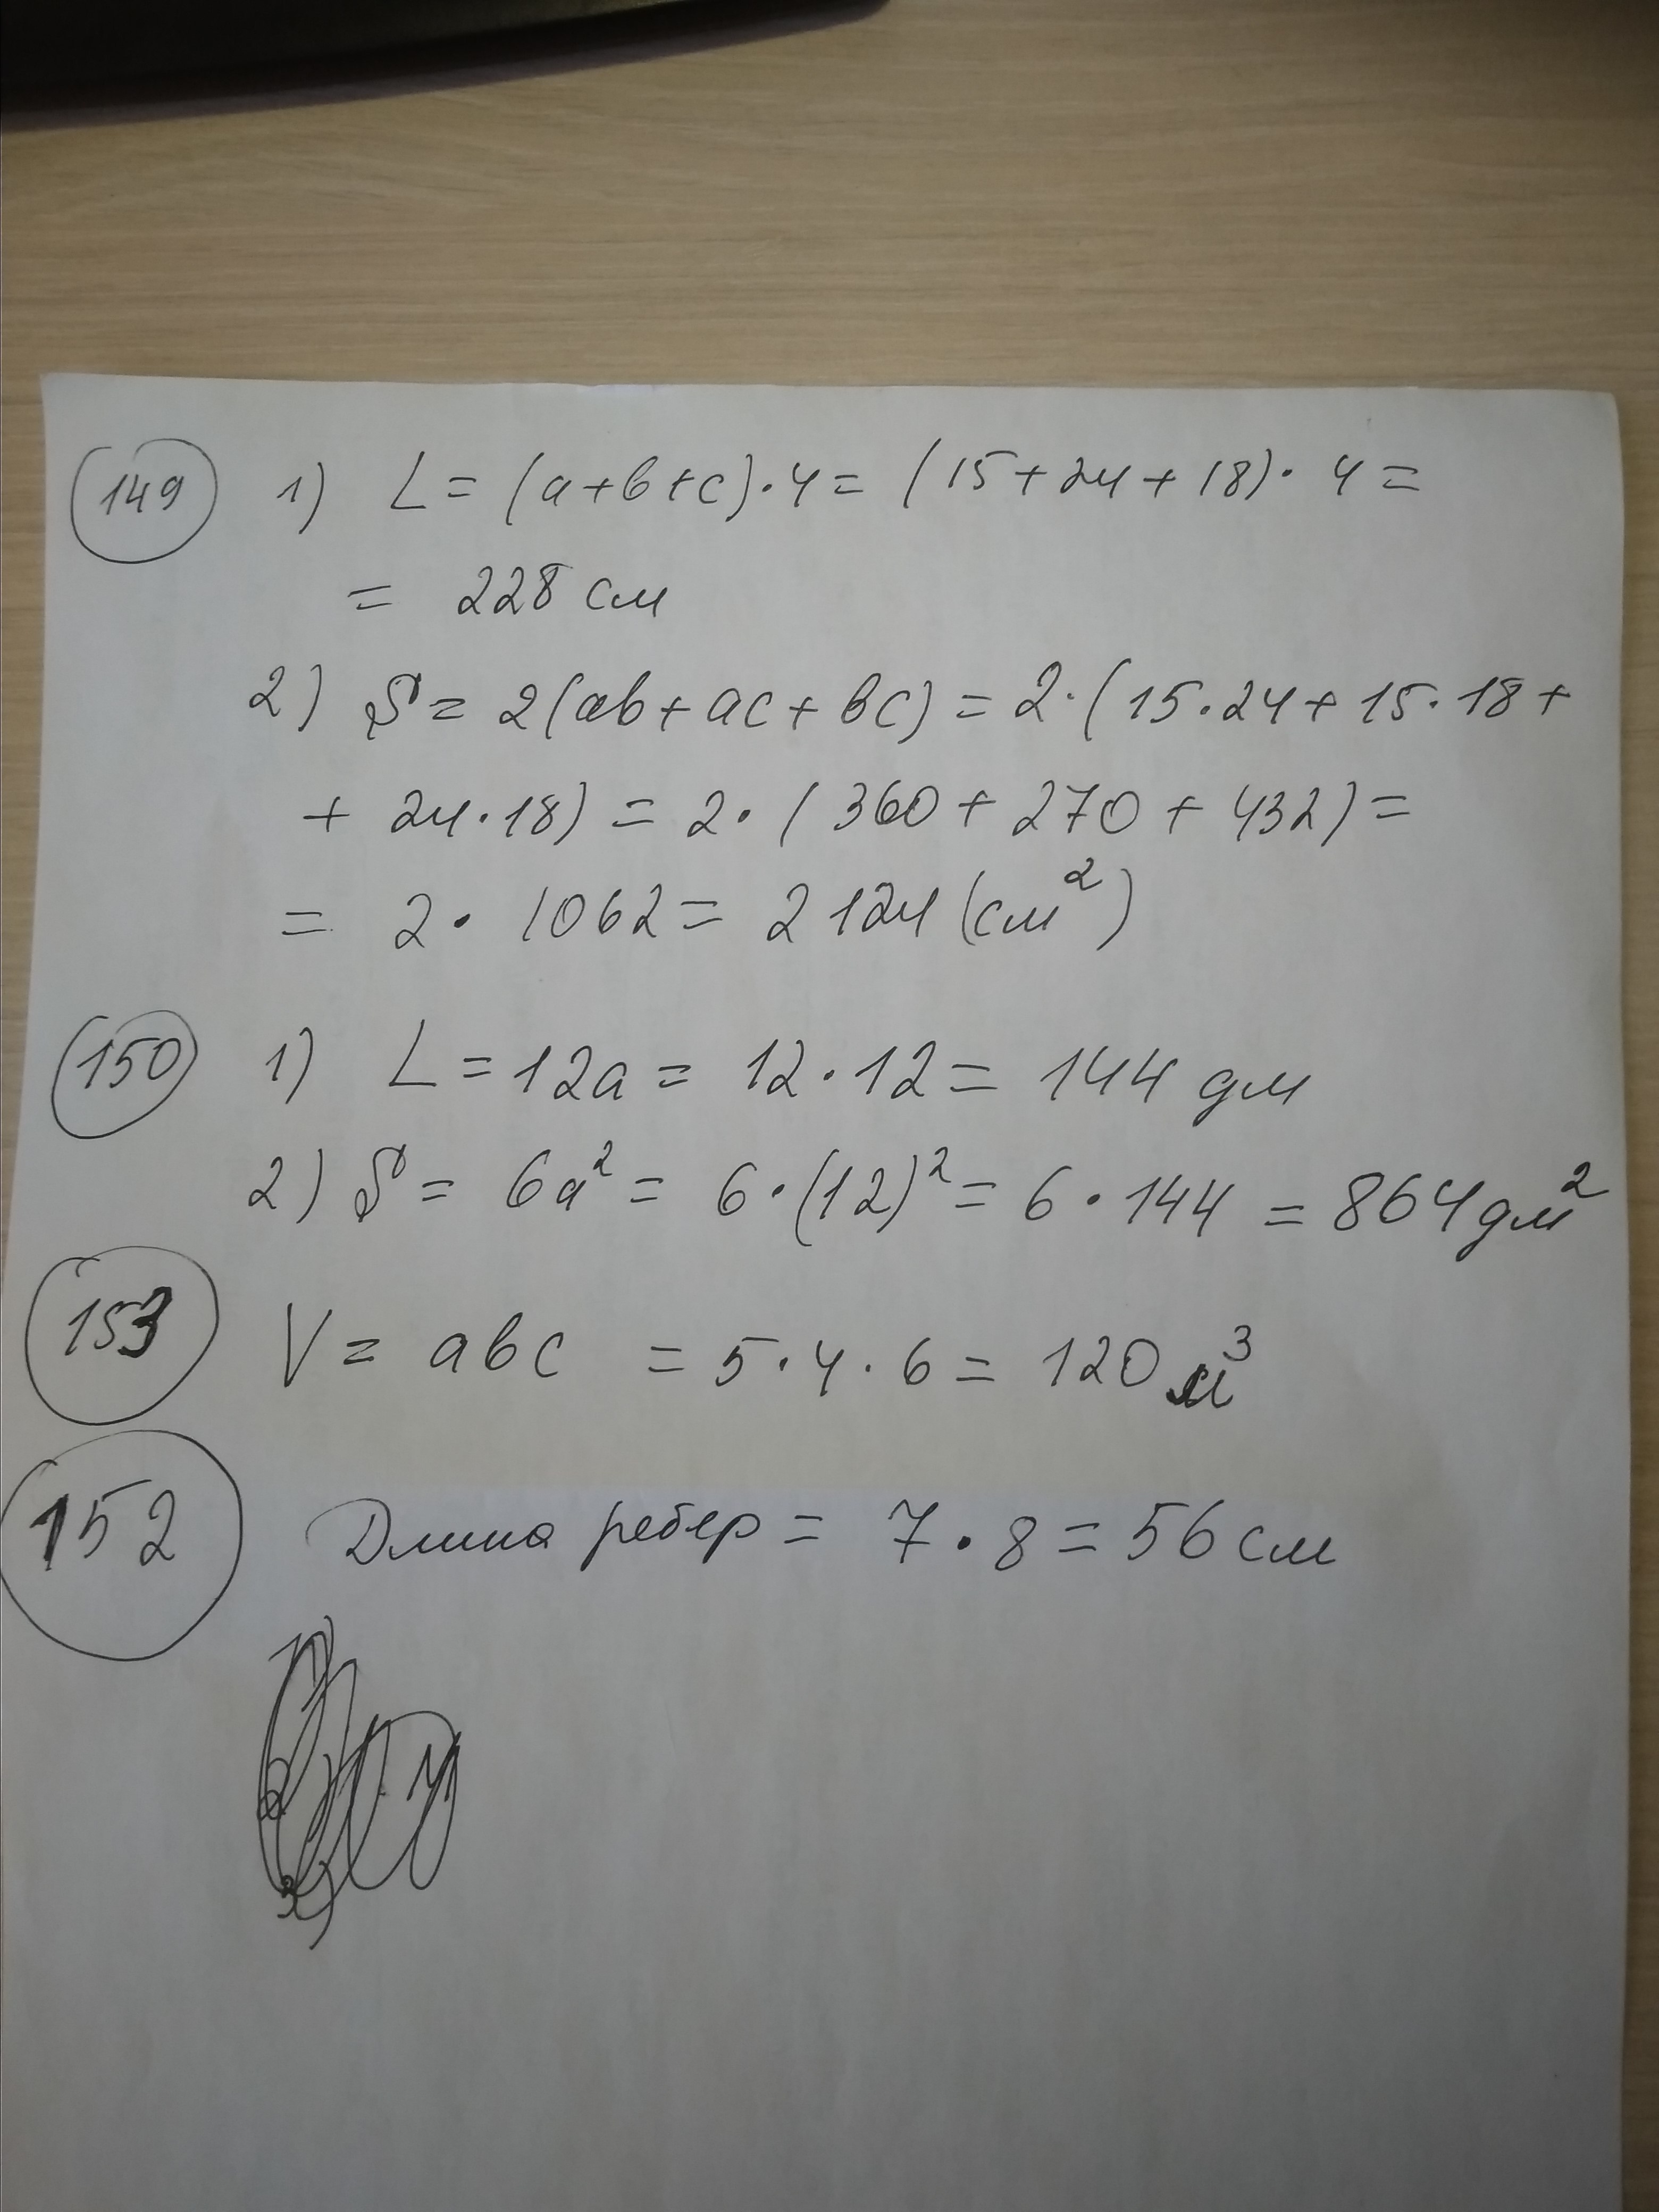 149 1) L = (a+b+c)·4 = (15+24+18)·4 =
= 228 см
2) S = 2(ab+ac+bc) = 2·(15·24+15·18+
+ 24·18) = 2·(360+270+432) =
= 2·1062 = 2124 (см²)
150 1) L = 12a = 12·12 = 144 дм
2) S = 6a² = 6·(12)² = 6·144 = 864 дм²
153 V = abc = 5·4·6 = 120 м³
152 Длина ребер = 7·8 = 56 см